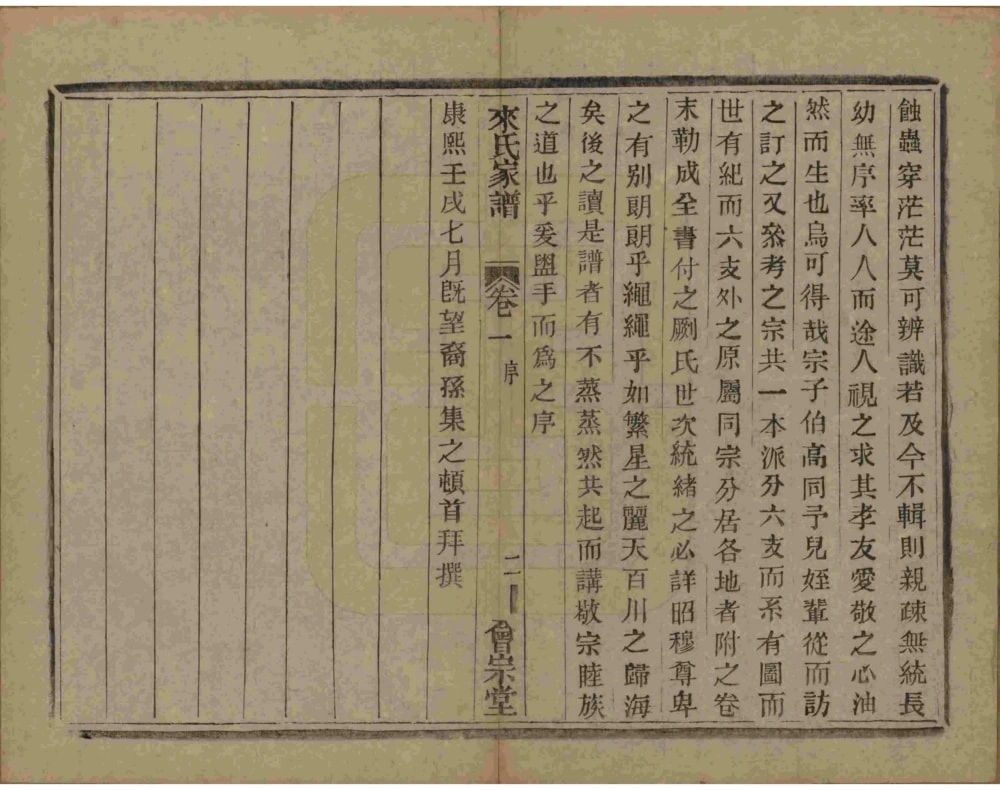 蝕蟲穿茫茫莫可辨識若及今不輯則親疎無統長
幼無序率人人而途人視之求其孝友愛敬之心油
然而生也烏可得哉宗子伯高同予兒姪輩從而訪
之訂之又叅考之宗共一本派分六支而系有圖而
世有紀而六支外之原屬同宗分居各地者附之卷
末勒成全書付之劂氏世次統緒之必詳昭穆尊卑
之有别朗朗乎繩繩乎如繁星之麗天百川之歸海
矣後之讀是譜者有不蒸蒸然共起而講敬宗睦族
之道也乎爰盥手而爲之序
來氏家譜 卷一 序 二 會宗堂
康熙壬戌七月旣望裔孫集之頓首拜撰